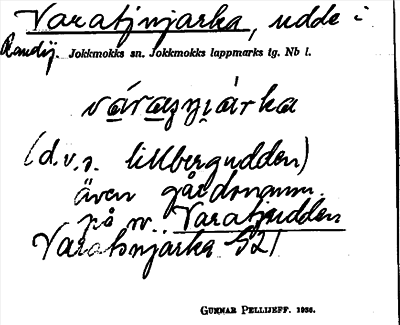 Varatjnjarka, udde i
Randij. Jokkmokks sn. Jokkmokks lappmarks tg. Nb l.
váraṣńi̯árka
(d.v.s. lillbergudden)
även gårdsnamn.
på sv. Varatjudden
Varatsnjarka G21
GUNNAR PELLIJEFF. 1936.